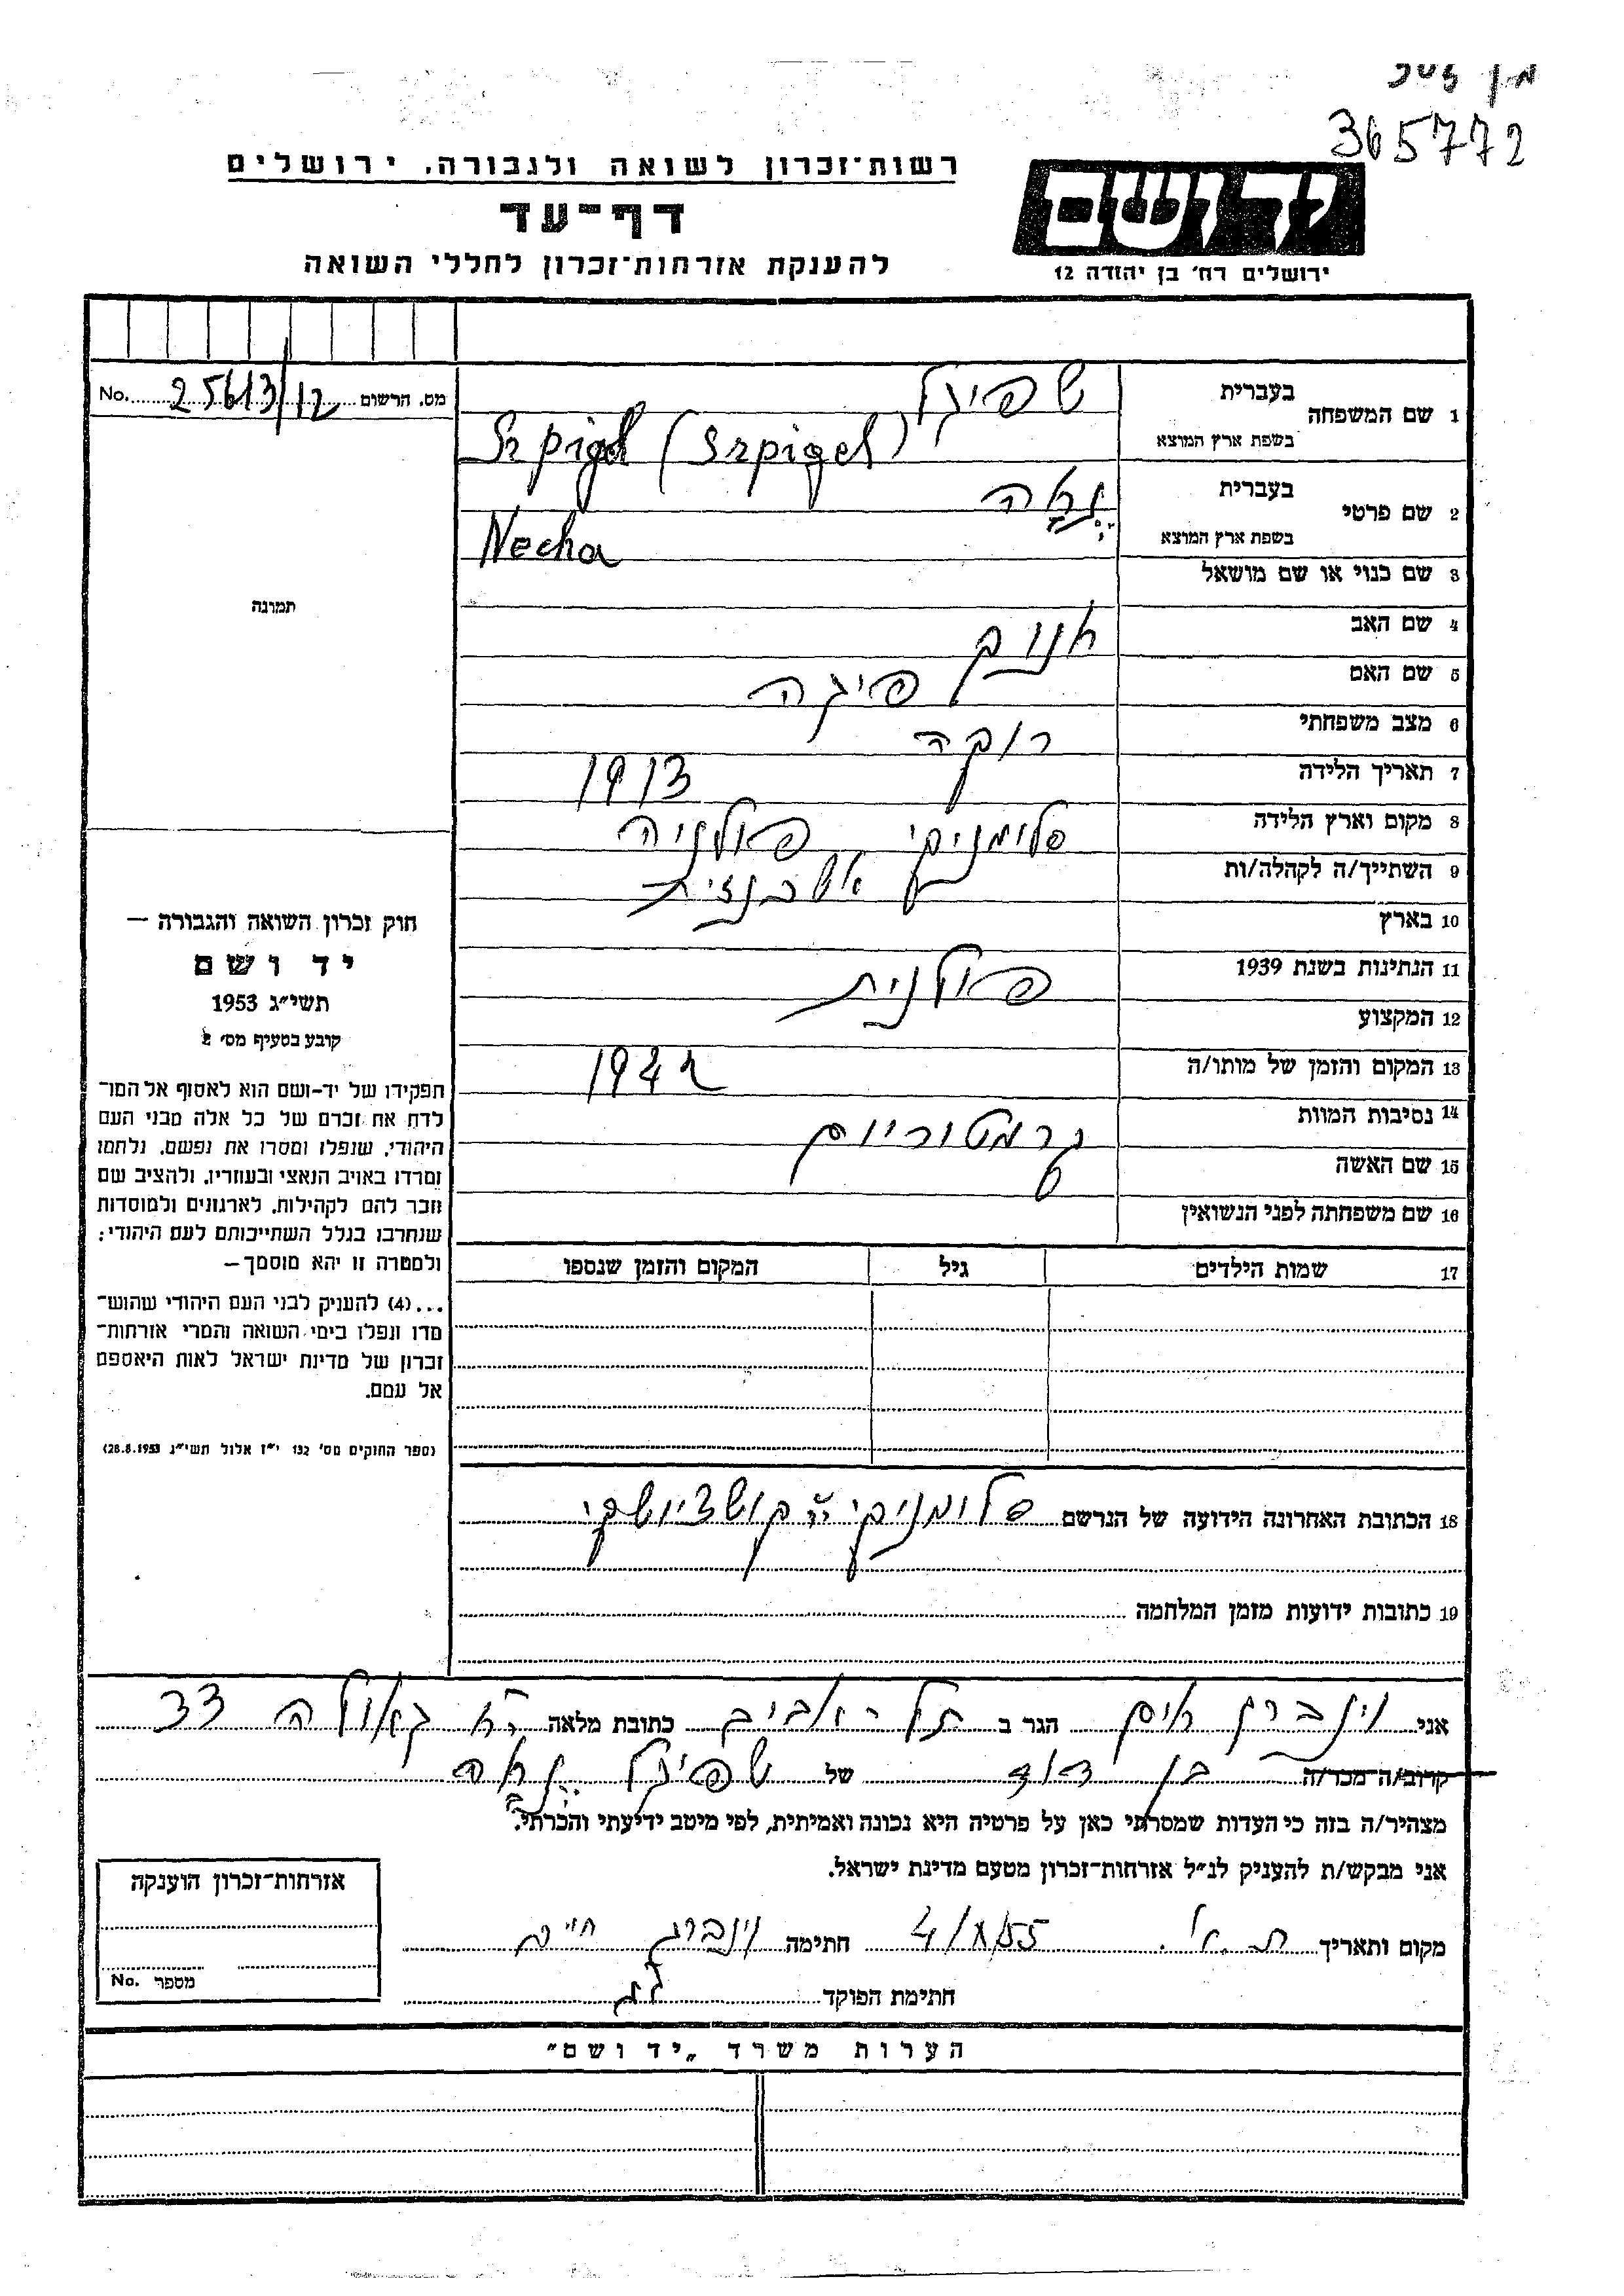 365772
רשות־זכרון לשואה ולגבורה. ירושלים
ידושם
דף־עד
להענקת אזרחות־זכרון לחללי השואה
ירושלים רח' בן יהודה 12
מס. הרשום 25613/12 No.
1 שם המשפחה בעברית שפיגל
בשפת ארץ המוצא Szpigel (Szpigel)
2 שם פרטי בעברית נחה
בשפת ארץ המוצא Necha
3 שם כנוי או שם מושאל
תמונה
4 שם האב חנוך
5 שם האם פיגה
6 מצב משפחתי רוקה
7 תאריך הלידה 1913
8 מקום וארץ הלידה סלומניקי פולניה
9 השתייך/ה לקהלה/ות אשכנזית
10 בארץ
11 הנתינות בשנת 1939 פולנית
12 המקצוע
13 המקום והזמן של מותו/ה 1942
14 נסיבות המוות קרמטוריום
15 שם האשה
16 שם משפחתה לפני הנשואין
17 שמות הילדים גיל המקום והזמן שנספו
חוק זכרון השואה והגבורה —
יד ושם
תשי״ג 1953
קובע בסעיף מס' 2
תפקידו של יד-ושם הוא לאסוף אל המו־
לדת את זכרם של כל אלה מבני העם
היהודי, שנפלו ומסרו את נפשם, נלחמו
ומרדו באויב הנאצי ובעוזריו, ולהציב שם
וזכר להם לקהילות, לארגונים ולמוסדות
שנחרבו בגלל השתייכותם לעם היהודי;
ולמטרה זו יהא מוסמך—
...(4) להעניק לבני העם היהודי שהוש־
מדו ונפלו בימי השואה והמרי אזרחות־
זכרון של מדינת ישראל לאות היאספם
אל עמם.
(ספר החוקים מס' 132 י״ז אלול תשי״ג 28.8.1953)
18 הכתובת האחרונה הידועה של הנרשם סלומניקי רח' קושציושקי
19 כתובות ידועות מזמן המלחמה
אני וינברג חים הגר ב תל־אביב כתובת מלאה רח' גאולה 33
קרוב/ה־מכר/ה בן דוד של שפיגל נחה
מצהיר/ה בזה כי העדות שמסרתי כאן על פרטיה היא נכונה ואמיתית, לפי מיטב ידיעתי והכרתי.
אני מבקש/ת להעניק לנ״ל אזרחות־זכרון מטעם מדינת ישראל.
אזרחות־זכרון הוענקה
מספר No.
מקום ותאריך ת.א. 4/8/55 חתימה וינברג חיים
חתימת הפוקד
הערות משרד „יד ושם״